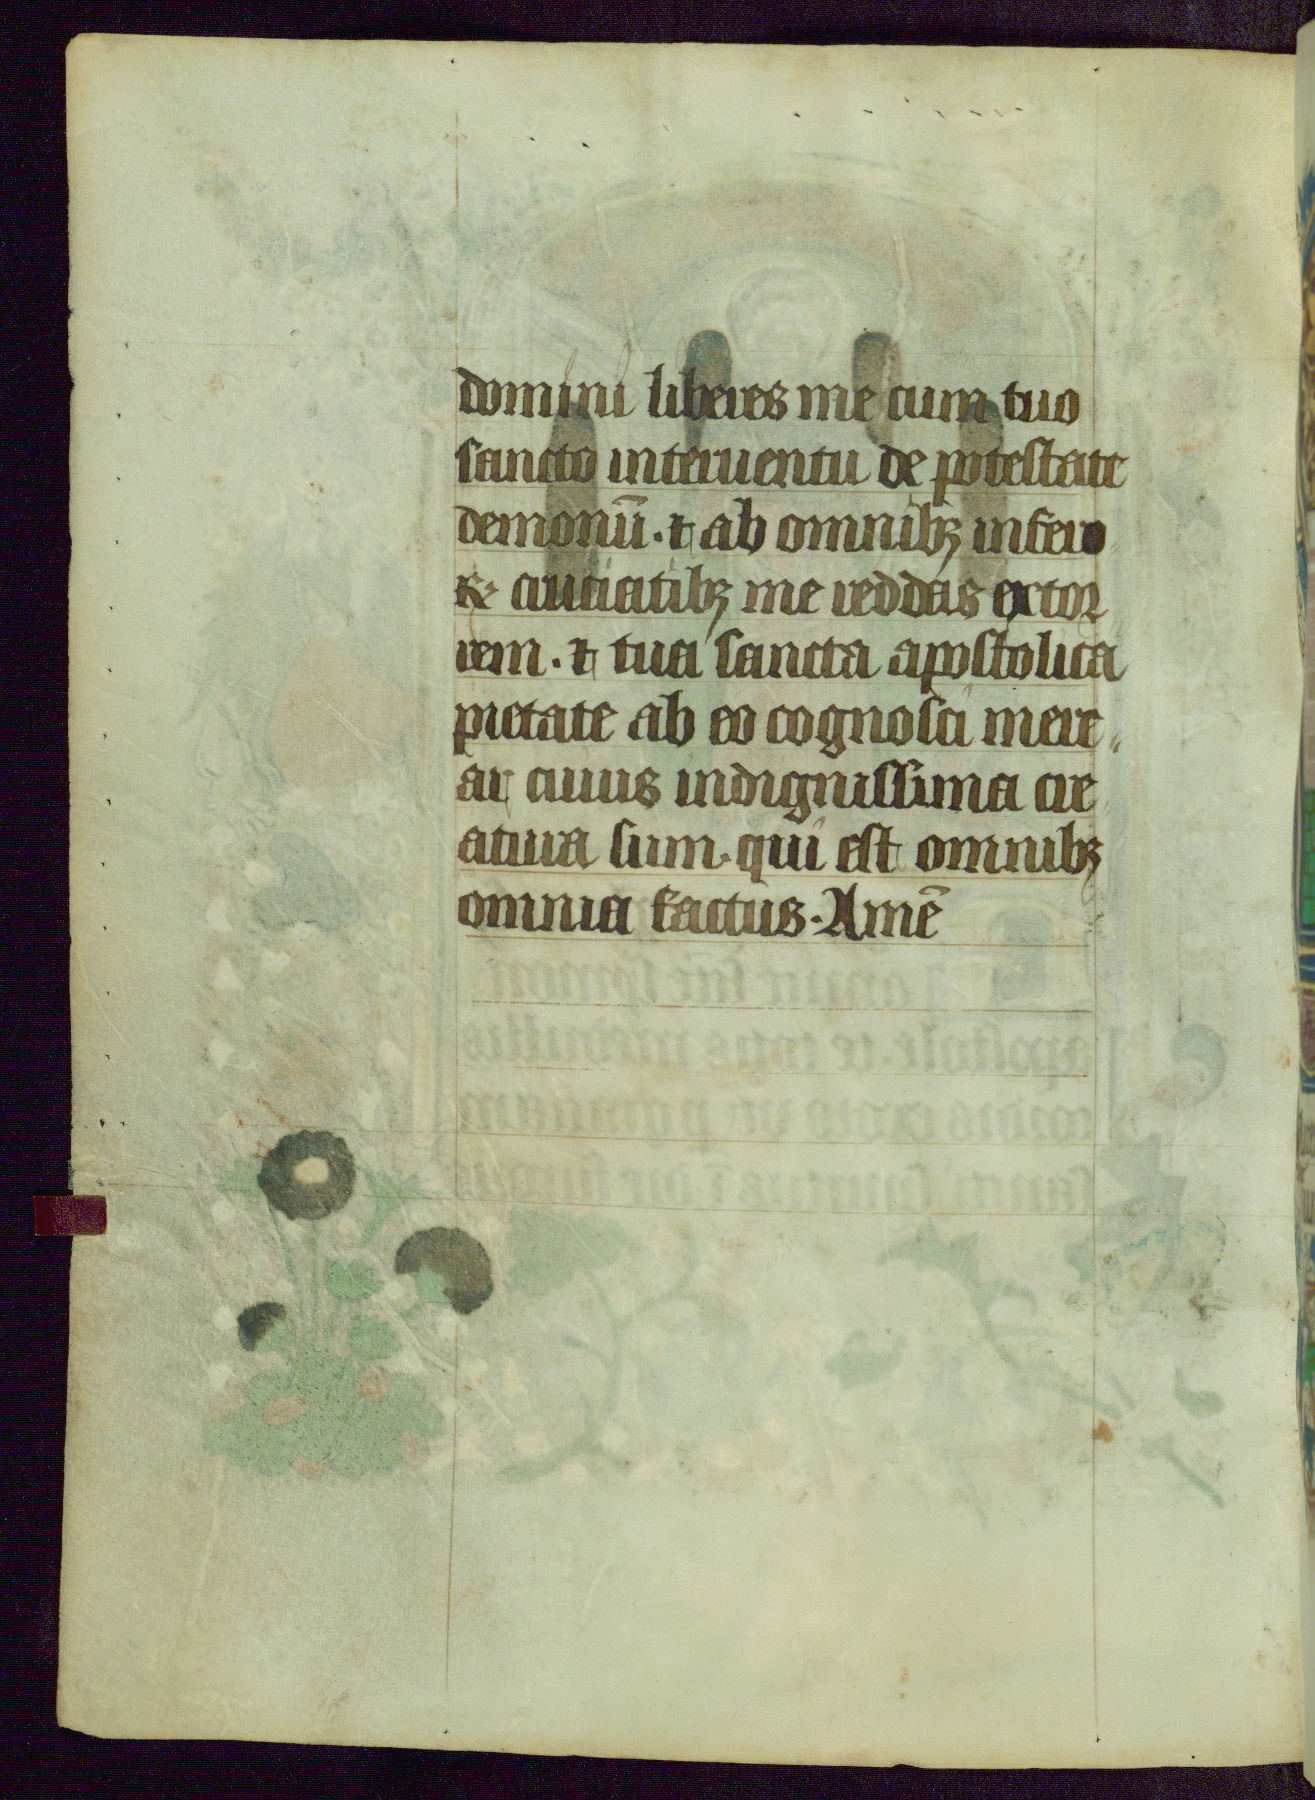 domini liberes me cum tuo
sancto interuentu de potestate
demonū. ⁊ ab omnibꝫ infero
& cruciatibꝫ me reddas extor
rem. ⁊ tua sancta apostolica
pietate ab eo cognosci mere„
ar cuius indignissima cre
atura sum. qui est omnibꝫ
omnia factus. Amē